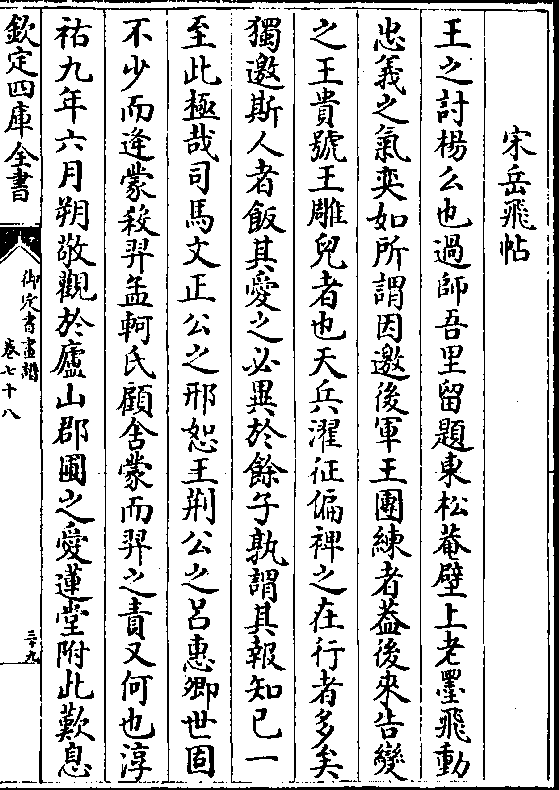 宋岳飛帖
王之討楊么也過師吾里留題東松菴壁上老墨飛動
忠義之氣奕如所謂因邀後軍王團練者蓋後來告變
之王貴號王雕兒者也天兵濯征偏裨之在行者多矣
獨邀斯人者飯其愛之必異於餘子孰謂其報知已一
至此極哉司馬文正公之邢恕王荆公之吕惠卿世固
不少而逢蒙殺羿孟軻氏顧舍蒙而羿之責又何也淳
祐九年六月朔敬觀於廬山郡圃之愛蓮堂附此歎息
欽定四庫全書
御定書畫譜
卷七十八
三十九